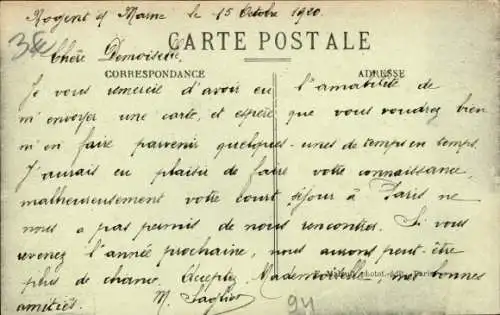 Nogent s/ Marne le 15 Octobre 1920.
Chère Demoiselle,
CARTE POSTALE
CORRESPONDANCE
ADRESSE
Je vous remercie d'avoir eu l'amabilité de
m'envoyer une carte, et espère que vous voudrez bien
m'en faire parvenir quelques-unes de temps en temps.
J'aurais eu plaisir de faire votre connaissance,
malheureusement votre court séjour à Paris ne
nous a pas permis de nous rencontrer. Si vous
revenez l'année prochaine, nous aurons peut-être
plus de chance. Acceptez, Mademoiselle, mes bonnes
amitiés.
M.
94